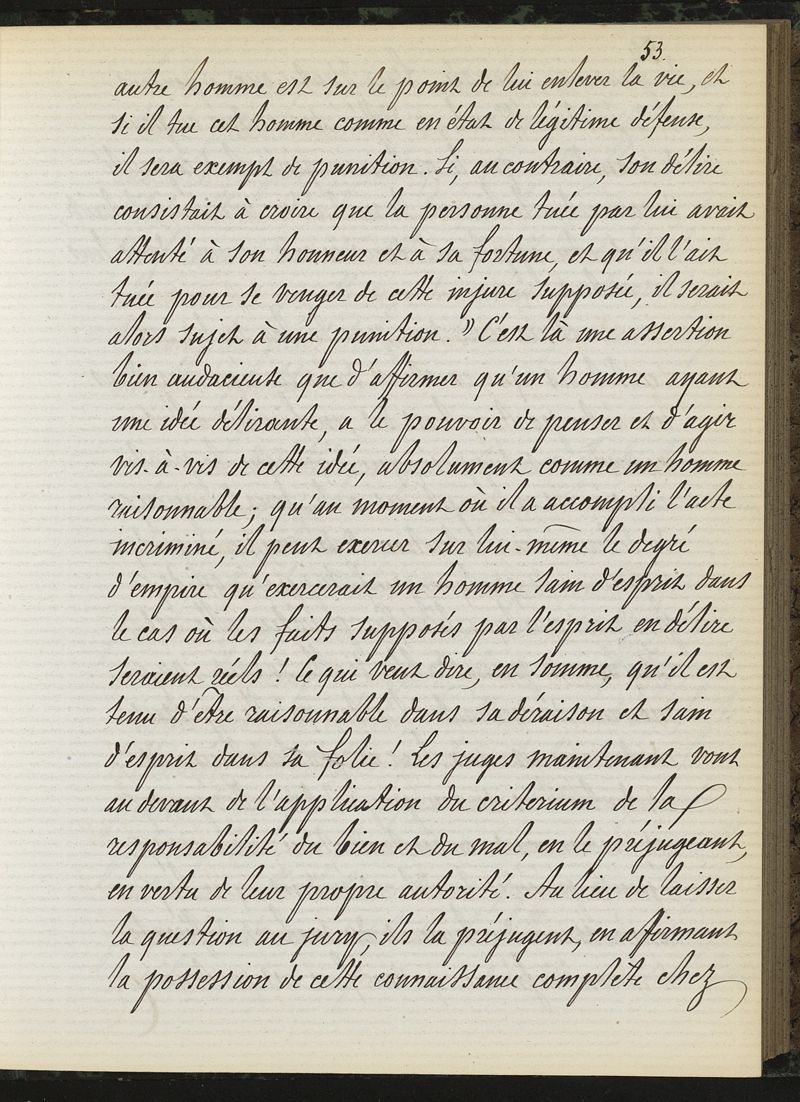 53.
autre homme est sur le point de lui enlever la vie, et
si il tue cet homme comme en état de légitime défense,
il sera exempt de punition. Si, au contraire, son délire
consistait à croire que la personne tuée par lui avait
attenté à son honneur et à sa fortune, et qu'il l'ait
tuée pour se venger de cette injure supposée, il serait
alors sujet à une punition. » C'est là une assertion
bien audacieuse que d'affirmer qu'un homme ayant
une idée délirante, a le pouvoir de penser et d'agir
vis-à-vis de cette idée, absolument comme un homme
raisonnable; qu'au moment où il a accompli l'acte
incriminé, il peut exercer sur lui-même le degré
d'empire qu'exercerait un homme sain d'esprit dans
le cas où les faits supposés par l'esprit en délire
seraient réels! Ce qui veut dire, en somme, qu'il est
tenu d'être raisonnable dans sa déraison et sain
d'esprit dans sa folie! Les juges maintenant vont
au devant de l'application du criterium de la
responsabilité du bien et du mal, en le préjugeant,
en vertu de leur propre autorité. Au lieu de laisser
la question au jury, ils la préjugent, en affirmant
la possession de cette connaissance complète chez